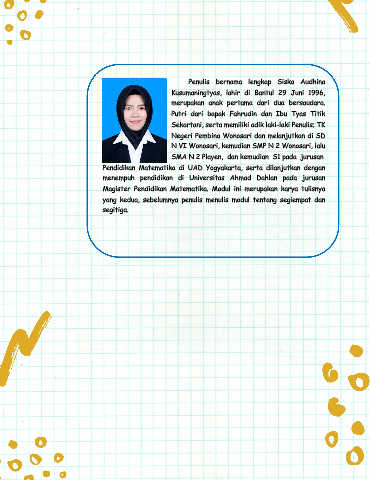 Penulis bernama lengkap Siska Audhina
Kusumaningtyas, lahir di Bantul 29 Juni 1996,
merupakan anak pertama dari dua bersaudara.
Putri dari bapak Fahrudin dan Ibu Tyas Titik
Sekartani, serta memiliki adik laki-laki Penulis; TK
Negeri Pembina Wonosari dan melanjutkan di SD
N VI Wonosari, kemudian SMP N 2 Wonosari, lalu
SMA N 2 Playen, dan kemudian S1 pada jurusan
Pendidikan Matematika di UAD Yogyakarta, serta dilanjutkan dengan
menempuh pendidikan di Universitas Ahmad Dahlan pada jurusan
Magister Pendidikan Matematika. Modul ini merupakan karya tulisnya
yang kedua, sebelumnya penulis menulis modul tentang segiempat dan
segitiga.